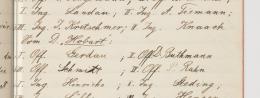 I. Ing. Landau; II. Ing. A. Tiemann;
III. Ing. J. Kretschmer; IV. Ing. Knaack
Vom D. "Hobart":
I. Off. Gerdau; II. Off. D. Bulkmann
III. Off. Schmidt; IV. Off. Rahn
I. Ing. Hinrichs; II. Ing. Reding;
III. Ing.